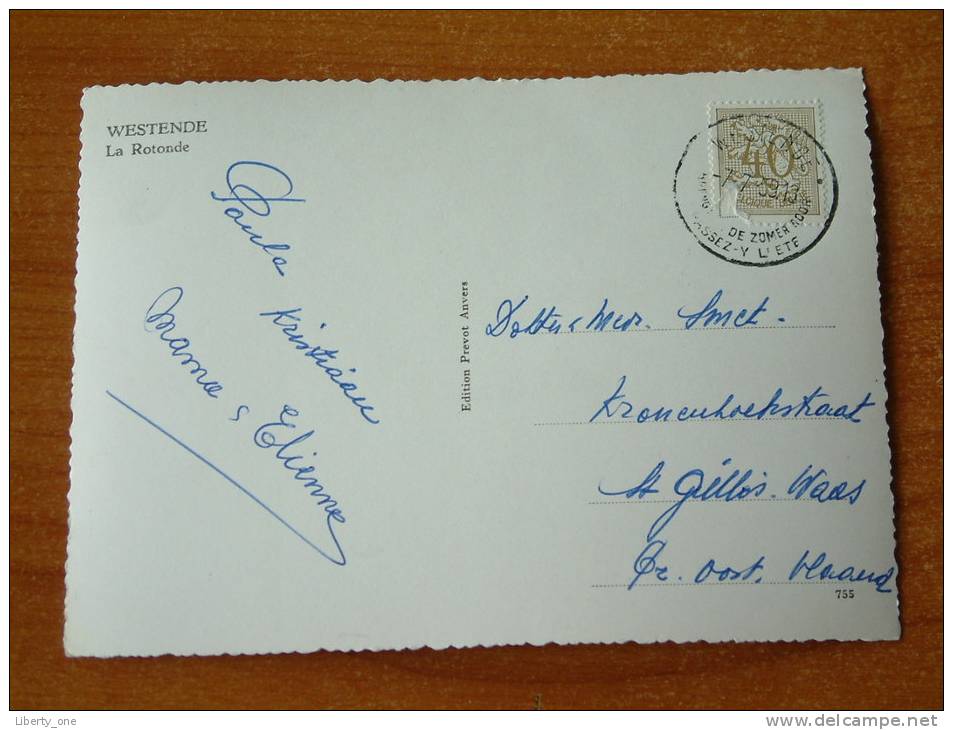 WESTENDE
La Rotonde
Paula
Kristiaan
Mama & Etienne
Edition Prevot Anvers
40
-7-7 59.13
DE ZOMER DOOR
PASSEZ-Y L'ETE
Mevr. Smet.
Kronenhoekstraat
St Gillis-Waas
Pr. Oost. Vlaand
755
Liberty_one
delcampe.net